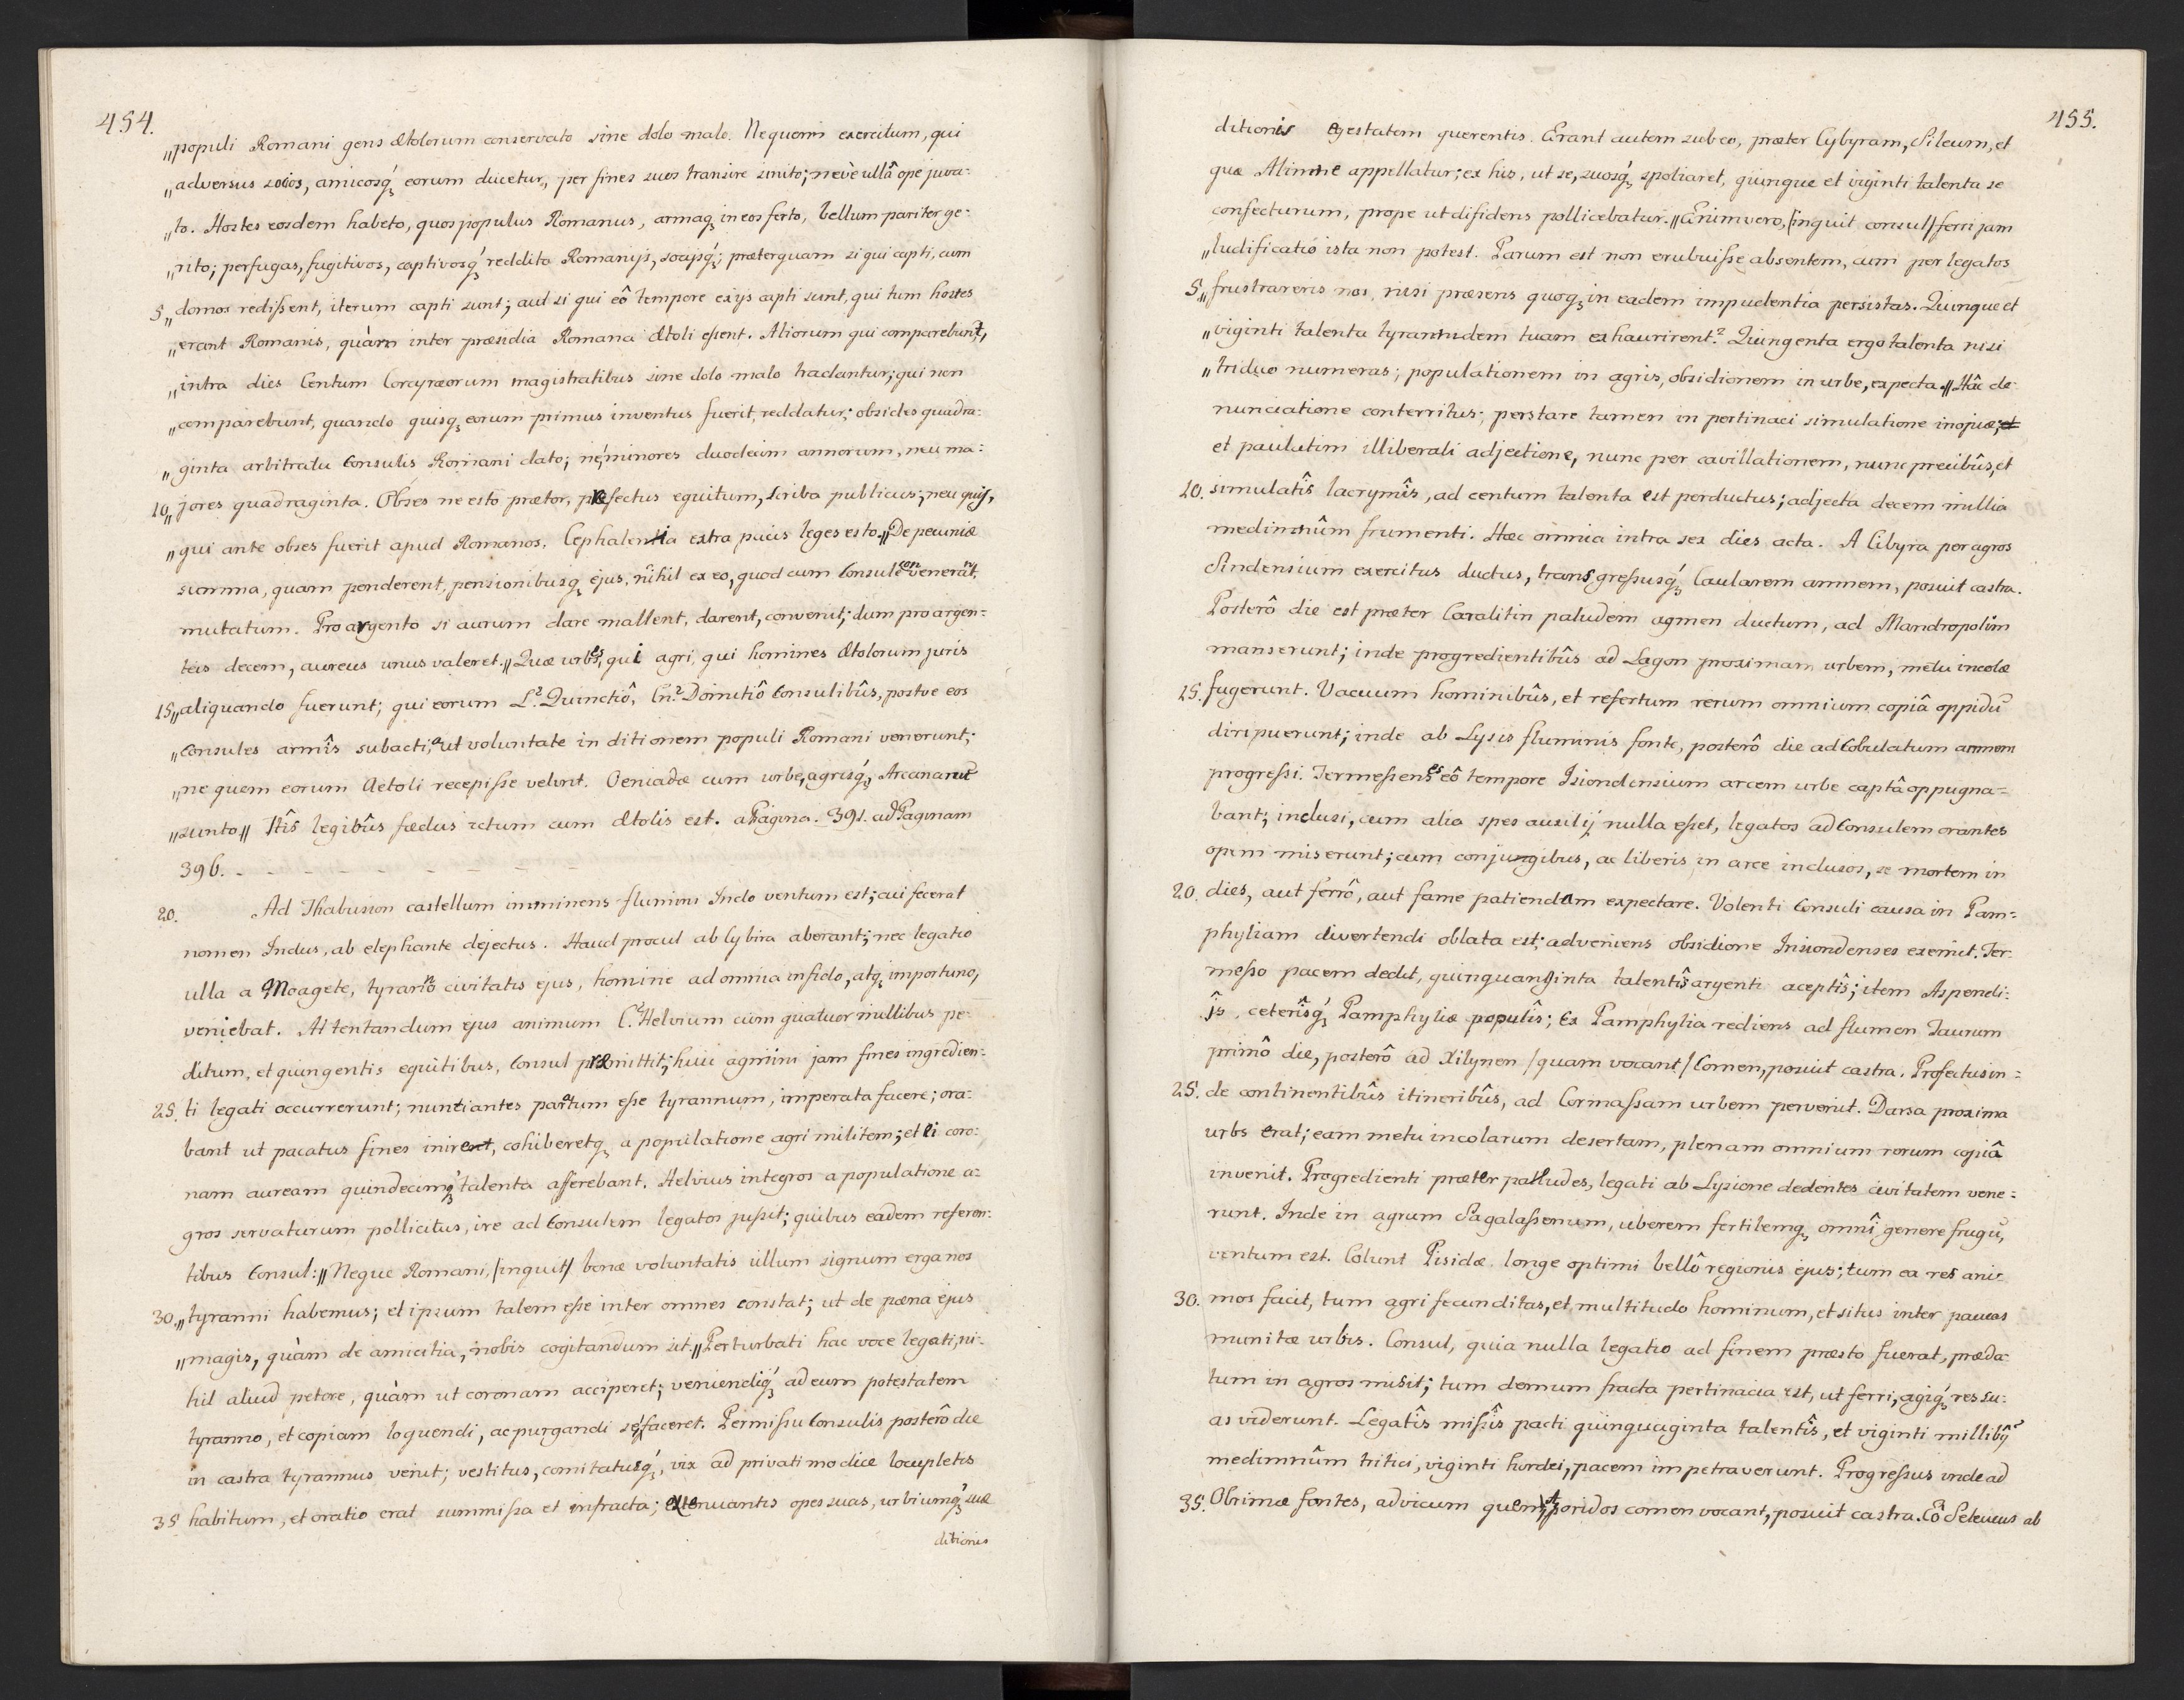 454.
„populi Romani gens Ætolorum conservato sine dolo malo. Nequem exercitum, qui
„adversus socios, amicosq́ꝫ eorum ducetur, per fines suos transire sinito; nevè ullâ ope juva:
„to. Hostes eosdem habeto, quos populus Romanus, armaqꝫ in eos ferto, bellum pariter ge:
„rito; perfugas, fugitivos, captivosq́ꝫ reddito Romanijs, socijsq́ꝫ; præterquam si qui capti, cum
5„ domos redissent, iterum capti sunt; aut si qui eô tempore ex ijs capti sunt, qui tum hostes
„erant Romanis, quàm inter præsidia Romana Ætoli essent. Aliorum qui comparebunt,
„intra dies Centum Corcyræorum magistratibus sine dolo malo tradantur; qui non
„comparebunt, quando quisqꝫ eorum primus inventus fuerit, reddatur; obsides quadra:
„ginta arbitratu Consulis Romani dato; né minores duodecim annorum, neu ma:
10„ jores quadraginta. Obses ne esto prætor, præfectus equitum, scriba publicus; neu quis,
„qui ante obses fuerit apud Romanos. Cephalenia extra pacis leges esto.„ De pecuniæ
summa, quam penderent, pensionibusqꝫ ejus, nihil ex eo, quod cum Consule convenerat,
mutatum. Pro argento si aurum dare mallent, darent, convenit; dum pro argen:
teis decem, aureus unus valeret.„ Quæ urbes, qui agri, qui homines Ætolorum juris
15„aliquando fuerunt; qui eorum L.º Quinctiô, Cn.º Domitiô Consulibûs, postve eos
„Consules armîs subacti, aut voluntate in ditionem populi Romani venerunt;
„ne quem eorum Aetoli recepisse velint. Oeniadæ cum urbe, agrisq́ꝫ, Arcananū
„sunto„ Itîs legibûs fædus ictum cum Ætolis est. a Pagina. 391. ad Paginam
396. - - - - - - - - -
20. Ad Thabusion castellum imminens flumini Indo ventum est; cui fecerat
nomen Indus, ab elephante dejectus. Haud procul ab Cybira aberant; nec legatio
ulla a Moagete, tyrannô civitatis ejus, homine ad omnia infido, atqꝫ importuno,
veniebat. At tentandum ejus animum C.º Helvium cum quatuor millibus pe:
ditum, et quingentis equitibus, Consul præmittit; huic agmini jam fines ingredien:
25. ti legati occurrerunt; nuntiantes paratum esse tyrannum, imperata facere; ora:
bant ut pacatus fines iniret, cohiberetqꝫ a populatione agri militem; et li coro:
nam auream quindecimq́ꝫ talenta afferebant. Helvius integros a populatione a:
gros servaturum pollicitus, ire ad Consulem legatos jussit; quibus eadem referen:
tibus Consul: „Neque Romani, /inquit/ bonæ voluntatis ullum signum erga nos
30.„tyranni habemus; et ipsum talem esse inter omnes constat; ut de pæna ejus
„magis, quàm de amicitia, nobis cogitandum sit.„ Perturbati hac voce legati, ni:
hil aliud petere, quàm ut coronam acciperet; veniendiq́ꝫ ad eum potestatem
tyranno, et copiam loquendi, ac purgandi sé faceret. Permissu Consulis posterô die
in castra tyrannus venit; vestitus, comitatusq́ꝫ, vix ad privati modice locupletis
35 habitum, et oratio erat summissa et infracta; extenuantis opes suas, urbiumq́ꝫ suæ
ditionis
455.
ditionis egestatem querentis. Erant autem sub eo, præter Cybyram, Sileum, et
quæ Alimne appellatur; ex his, ut se, suosq́ꝫ spoliaret, quinque et viginti talenta se
confecturum, prope ut difidens pollicebatur. „Enimvero, /inquit consul/ ferri jam
„ludificatio ista non potest. Parum est non erubuisse absentem, cum per legatos
5„ frustrareris nos, nisi præsens quoqꝫ in eadem impudentia persistas. Quinque et
„viginti talenta tyrannidem tuam exhaurirent? Quingenta ergo talenta nisi
„triduo numeras; populationem in agris, obsidionem in urbe, expecta.„ Hâc de:
nunciatione conterritus; perstare tamen in pertinaci simulatione inopiæ;
et paulatim illiberali adjectione, nunc per cavillationem, nunc precibûs, et
10. simulatîs lacrymîs, ad centum talenta est perductus; adjecta decem millia
medimnûm frumenti. Hæc omnia intra sex dies acta. A Cibyra per agros
Sindensium exercitus ductus, transgressusq́ꝫ Caularem amnem, posuit castra.
Posterô die est præter Caralitin paludem agmen ductum, ad Mandropolim
manserunt; inde progredientibûs ad Lagon proximam urbem, metu incolæ
15. fugerunt. Vacuum hominibûs, et refertum rerum omnium copiâ oppidū
diripuerunt; inde ab Lysis fluminis fonte, posterô die ad Cobulatum amnem
progressi. Termessenses eô tempore Isiondensium arcem urbe captâ oppugna:
bant; inclusi, cum alia spes ausilij nulla esset, legatos ad Consulem orantes
opem miserunt; cum conjungibus, ac liberis in arce inclusos, se mortem in
20. dies, aut ferrô, aut fame patiendam expectare. Volenti Consuli causa in Pam:
phyliam divertendi oblata est; adveniens obsidione Insiondenses exemit. Ter:
messo pacem dedit, quinquanginta talentîs argenti aceptîs; item Aspendi:
ĵs, ceterîsq́ꝫ Pamphyliæ populîs; Ex Pamphylia rediens ad flumen Taurum
primô die, posterô ad Xilynen /quam vocant/ Comen, posuit castra. Profectus in:
25. de continentibûs itineribûs, ad Cormassam urbem pervenit. Darsa proxima
urbs erat; eam metu incolarum desertam, plenam omnium rerum copiâ
invenit. Progredienti præter palludes, legati ab Lysione dedentes civitatem vene:
runt. Inde in agrum Sagalassenum, uberem fertilemqꝫ omnî genere frugū,
ventum est. Colunt Pisidæ longe optimi bellô regionis ejus; tum ea res anie
30. mos facit, tum agri fecunditas, et multitudo hominum, et situs inter paucas
munitæ urbis. Consul, quia nulla legatio ad finem præsto fuerat, præda:
tum in agros misit; tum demum fracta pertinacia est, ut ferri, agiq́ꝫ res su:
as viderunt. Legatîs missîs pacti quinquaginta talentîs, et viginti millibꝰ
medimnûm tritici, viginti hordei, pacem impetraverunt. Progressus inde ad
35. Obrimæ fontes, ad vicum quem Aporidos comen vocant, posuit castra. Eô Seleucus ab